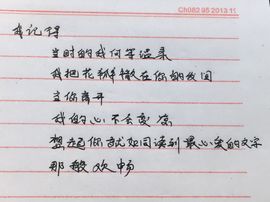 Ch082 95 2013 1
我记得
当时的我何等温柔
我把花辫撒在你的发间
当你离开
我的心不会变凉
想起你就如同读到最心爱的文字
那般欢畅